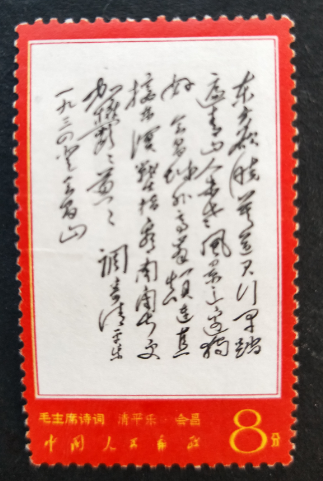 东方欲晓莫道君行早踏
遍青山人未老风景这边独
好会昌城外高峰颠连直
接东溟战士指看南粤更
加鬱〻葱〻 调寄清平乐
一九三四登会昌山
毛主席诗词 清平乐·会昌
中国人民邮政 8分